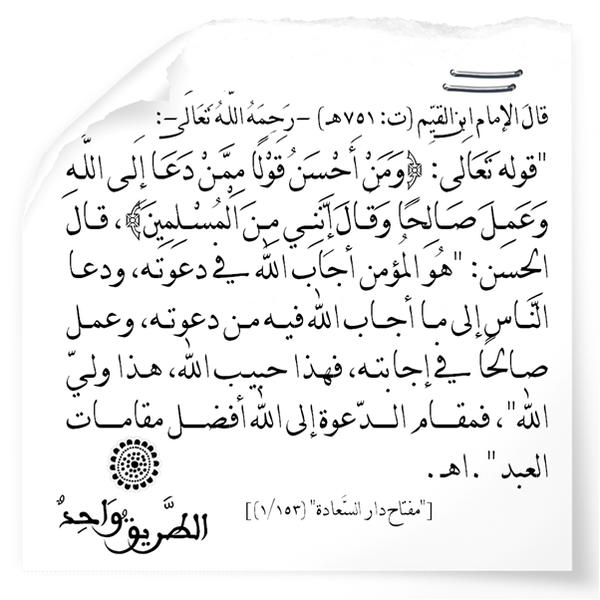 قالَ الإمام ابن القيّم (ت: ٧٥١هـ) -رَحِمَهُ اللَّهُ تَعَالَى-:
"قوله تَعَالى: ﴿وَمَنْ أَحْسَنُ قَوْلًا مِمَّنْ دَعَا إِلَى اللَّهِ
وَعَمِلَ صَالِحًا وَقَالَ إِنَّنِي مِنَ الْمُسْلِمِينَ﴾، قال
الحسن: "هُوَ المُؤمن أجَابَ اللهَ في دعوته، ودعا
النَّاسِ إلى ما أجاب الله فيه من دعوته، وعمل
صالحًا في إجابته، فهذا حبيب الله، هذا وليّ
الله"، فمقام الدّعوة إلى الله أفضل مقامات
العبد". اهـ.
["مفتاح دار السَّعادة" (١/١٥٣)]
الطَّريقُ وَاحِدٌ